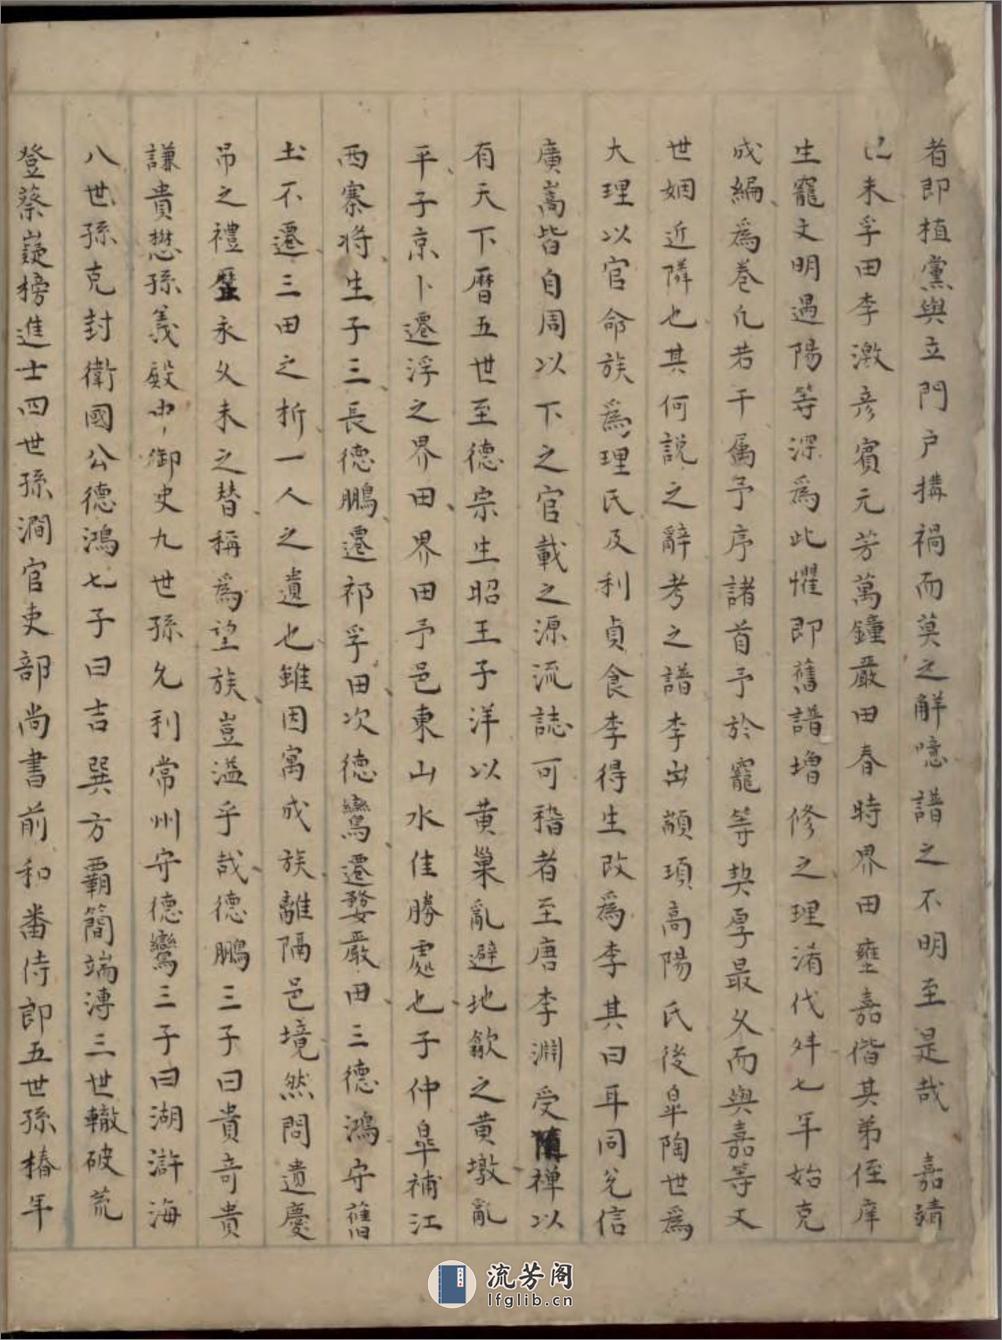 者即植黨與立門戶搆禍而莫之解噫譜之不明至是哉　嘉靖
己未孚田李激彥賓元芳萬鐘嚴田春時界田壅嘉偕其弟侄庠
生寵文明過陽等深為此懼即舊譜增修之理淆代舛七年始克
成編爲卷凡若干属予序諸首予於寵等契厚最久而與嘉等又
世姻近隣也其何說之辭考之譜李出顓頊高陽氏後臯陶世爲
大理以官命族爲理氏及利貞食李得生改爲李其曰耳同兊信
廣嵩皆自周以下之官載之源流誌可稽者至唐李淵受隋禪以
有天下曆五世至德宗生昭王子洋以黄巢亂避地歙之黄墩亂
平子京卜遷浮之界田界田予邑東山水佳勝處也子仲臯補江
西寨将生子三長德鵬遷祁孚田次德鸞遷婺嚴田三德鴻守舊
土不遷三田之析一人之遺也雖因寓成族離隔邑境然問遺慶
吊之禮歷永久未之替稱爲望族豈溢乎哉德鵬三子曰貴奇貴
謙貴懋孫義殿中御史九世孫允利常州守德鸞三子曰湖滸海
八世孫克封衛國公德鴻七子曰吉巽方覇簡端漙三世轍破荒
登蔡嶷榜進士四世孫澗官吏部尚書前和番侍郎五世孫椿年
流芳阁
lfglib.cn